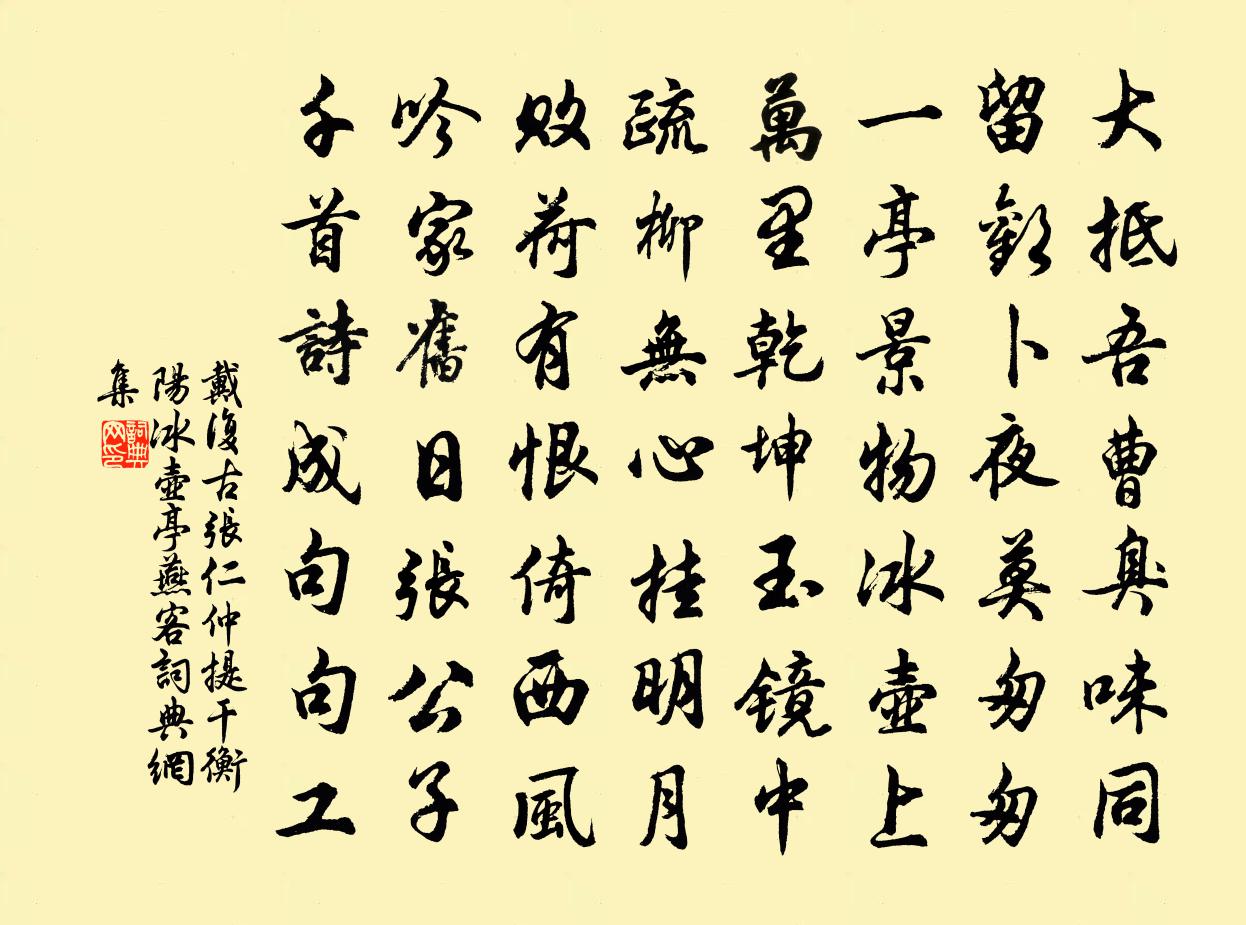 大抵吾曹臭味同
留歡卜夜莫匆匆
一亭景物冰壺上
萬里乾坤玉鏡中
疏柳無心挂明月
敗荷有恨倚西風
吟家舊日張公子
千首詩成句句工
戴復古張仁仲提干衡
陽冰壺亭燕客詞典網
集
詞典网印